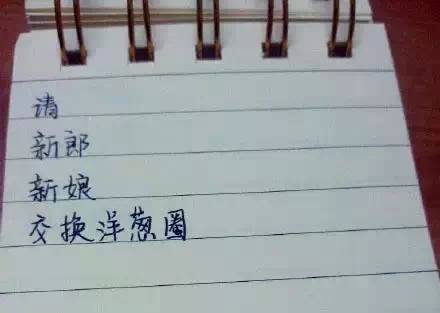 请
新郎
新娘
交换洋葱圈